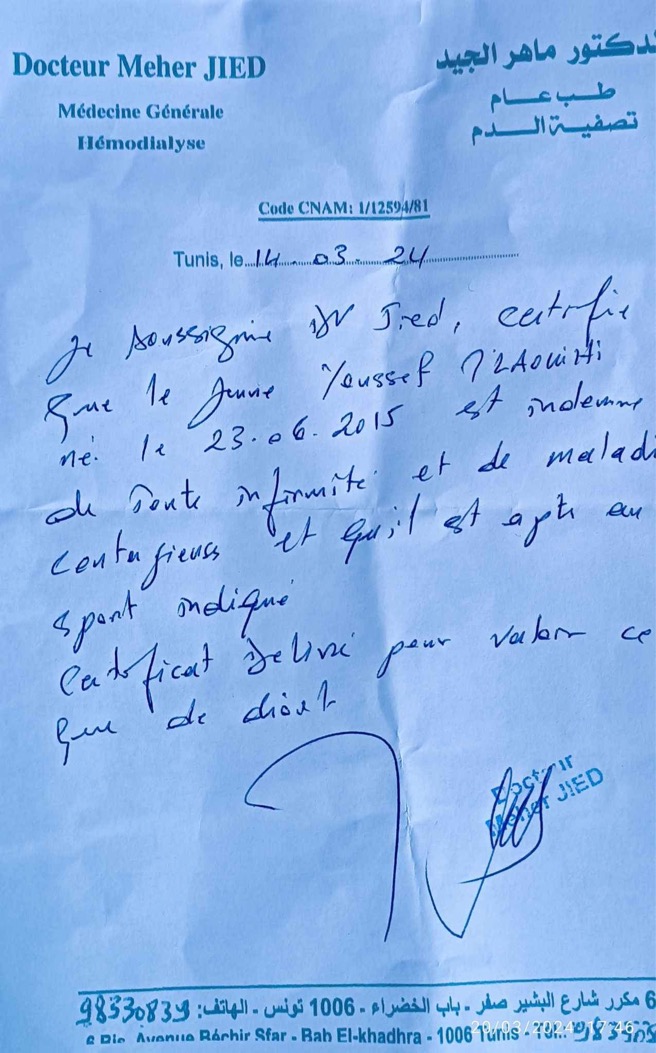 Docteur Meher JIED
Médecine Générale
Hémodialyse
لدكتور ماهر الجيد
طب عام
تصفية الدم
Code CNAM: 1/12594/81
Tunis, le 14 03 24
Je soussigné Dr Jied, certifie
que le jeune Youssef
né le 23.06.2015 est indemne
de toute infirmité et de maladi
contagieuse et qu'il est apte au
sport indiqué
Certificat délivré pour valoir ce
que de droit
Docteur
Meher JIED
6 مكرر شارع البشير صفر - باب الخضراء - 1006 تونس - الهاتف: 98330839
6 Bis, Avenue Béchir Sfar - Bab El-khadhra - 1006 Tunis - Tél.:
20/03/2024 17:46